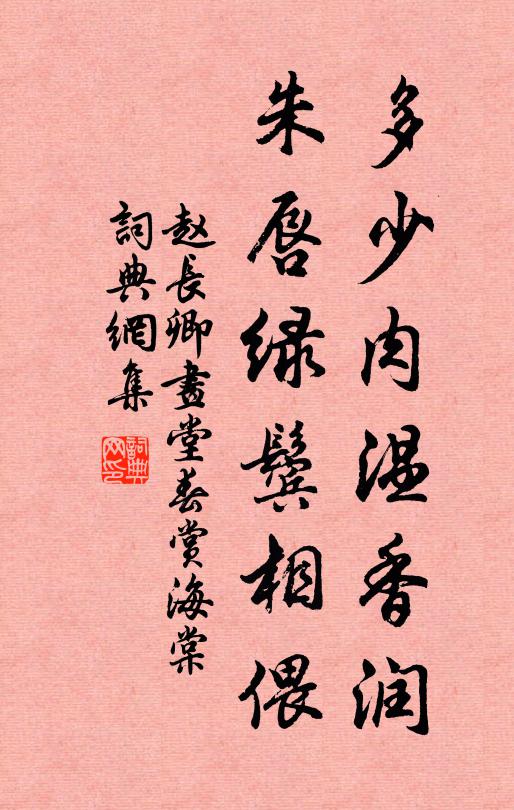 多少肉温香润
朱唇绿鬓相偎
赵長卿畫堂春赏海棠
詞典網集
詞典网印